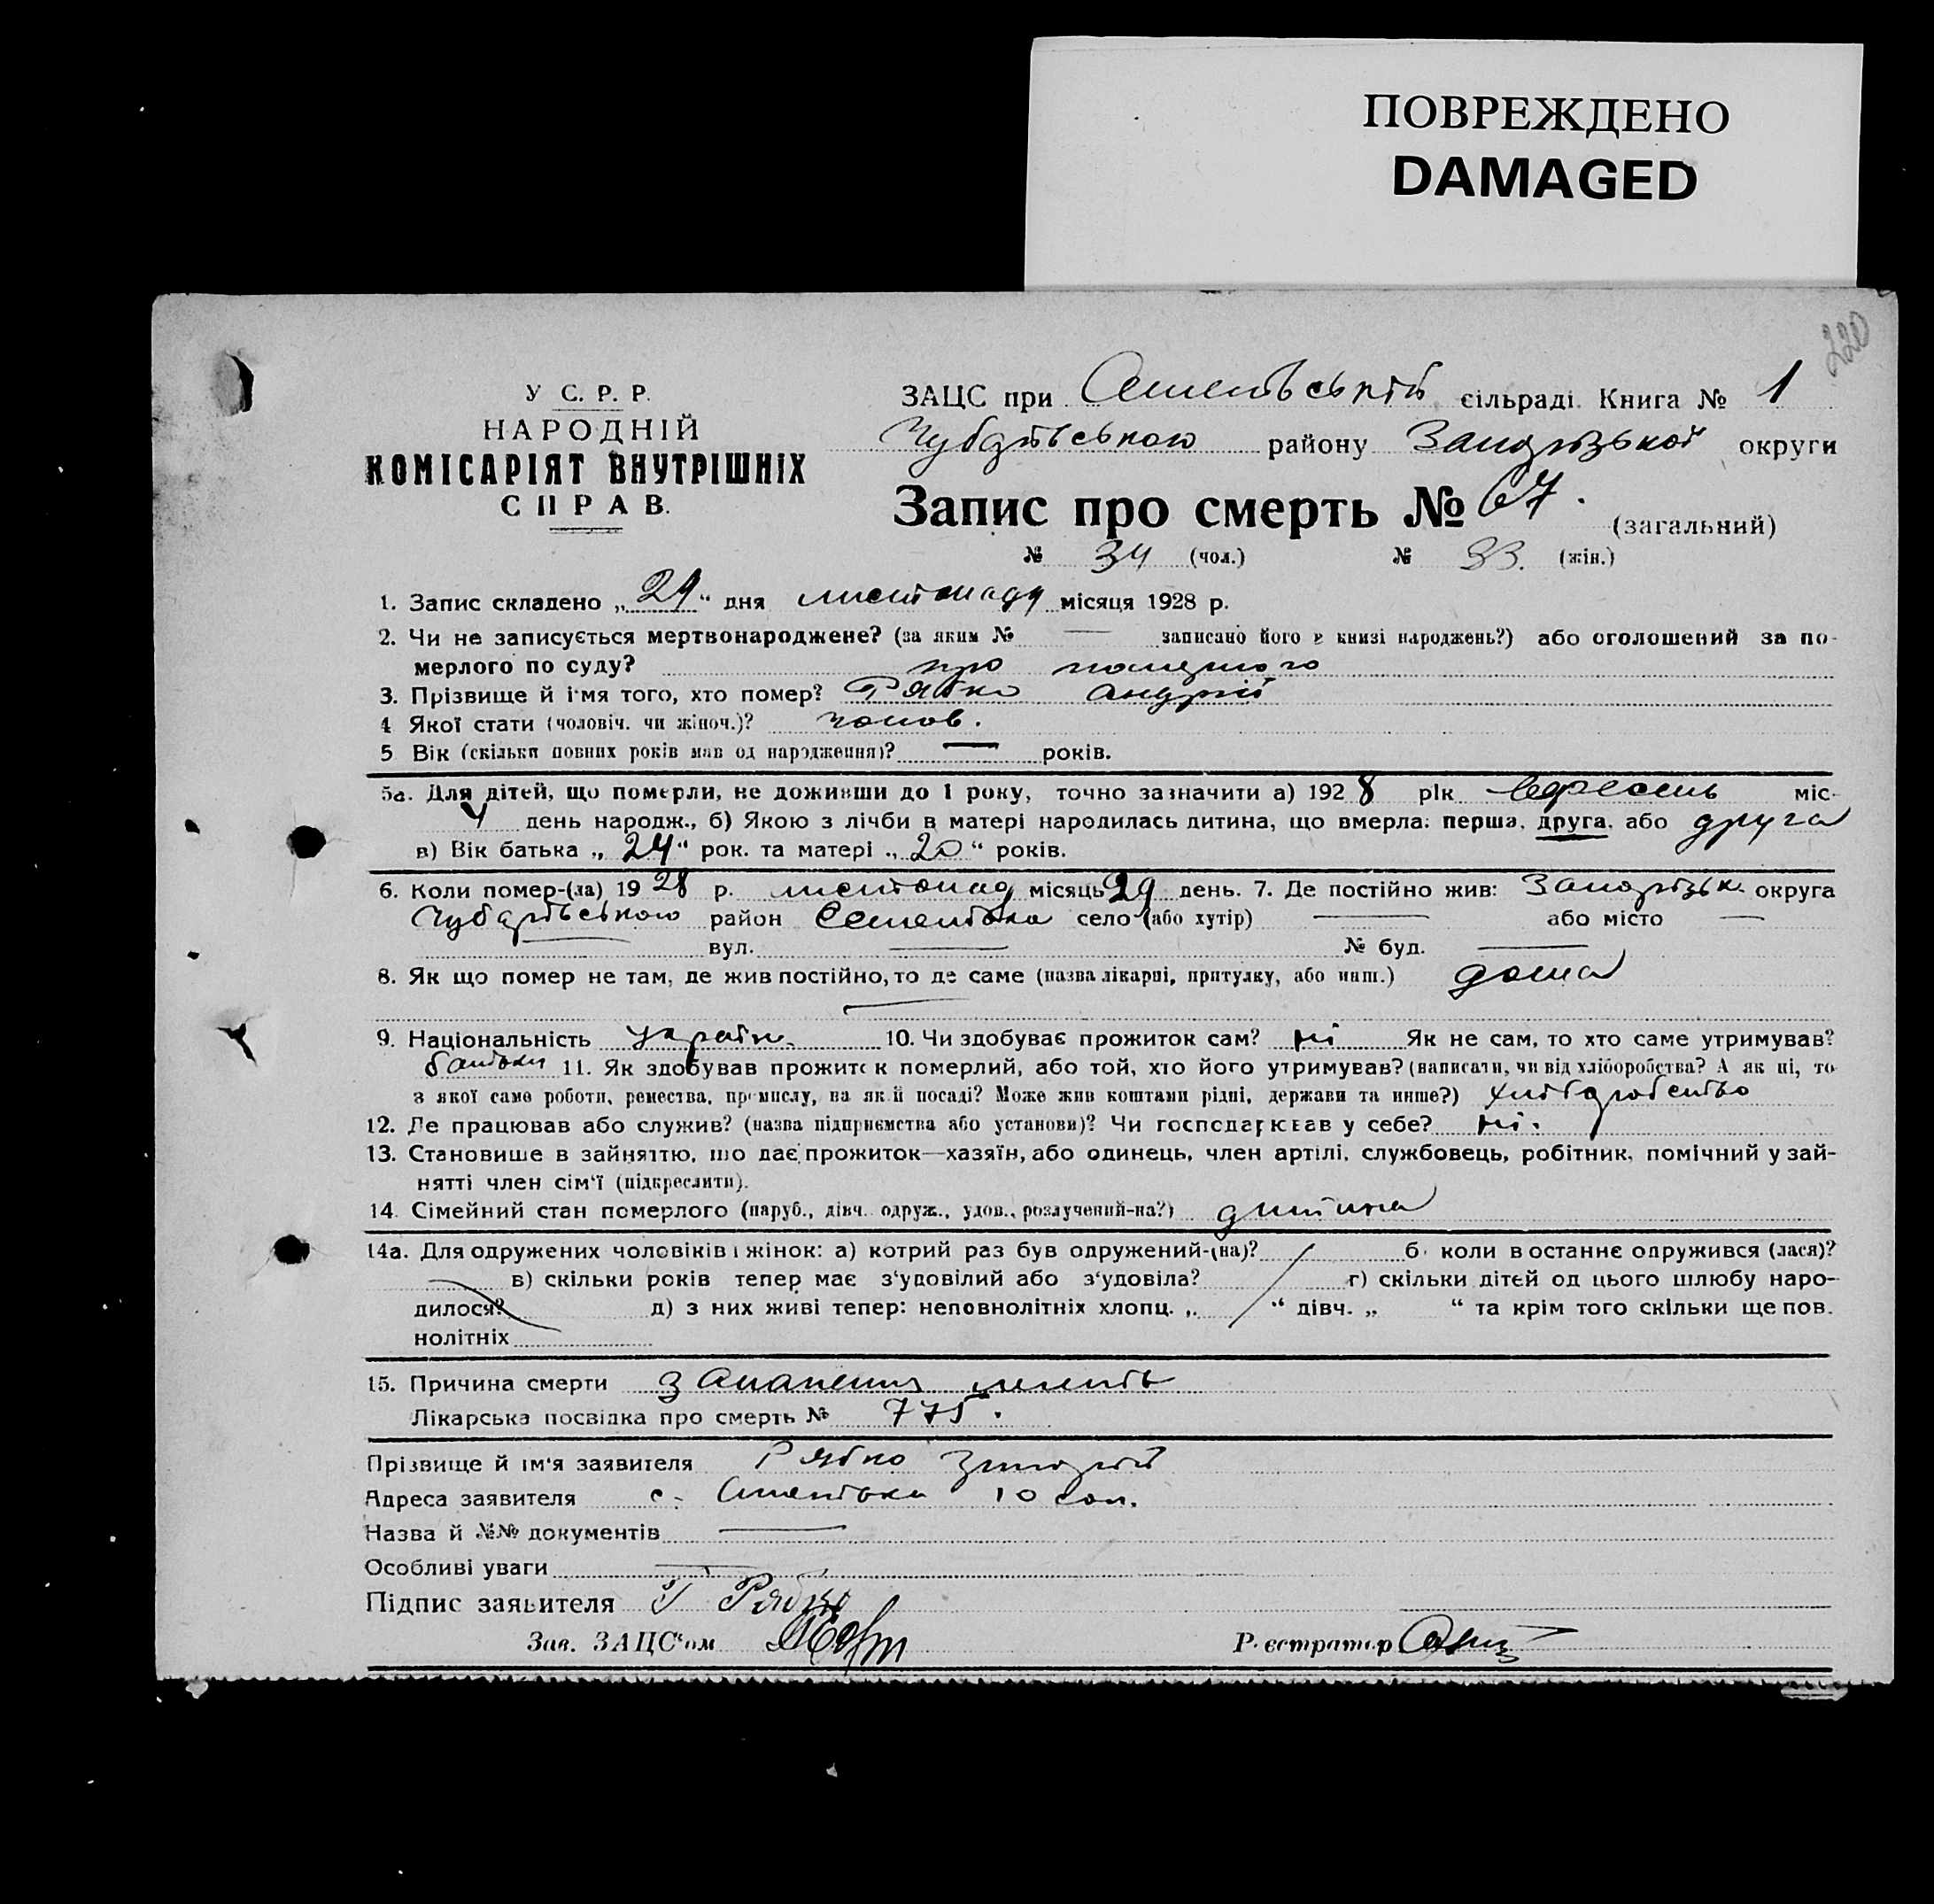 ПОВРЕЖДЕНО
DAMAGED
220
У С. Р. Р.
НАРОДНІЙ
КОМІСАРІЯТ ВНУТРІШНІХ
СПРАВ.
ЗАЦС при сільраді Книга № 1
Чубарівського району Запорізької округи
Запис про смерть № 67. (загальний)
№ 34 (чол.) № 33. (жін.)
1. Запис складено „29“ дня листопаду місяця 1928 р.
2. Чи не записується мертвонароджене? (за яким № — записано його в книзі народжень?) або оголошений за по-
мерлого по суду? про
3. Прізвище й ім'я того, хто помер? Рябко Андрій
4 Якої стати (чоловіч. чи жіноч.)? чолов.
5 Вік (скільки повних років мав од народження)? — років.
5а. Для дітей, що померли, не доживши до 1 року, точно зазначити а) 1928 рік вересень міс-
4 день народж., б) Якою з лічби в матері народилась дитина, що вмерла: перша, друга, або друга
в) Вік батька „24“ рок. та матері „20“ років.
6. Коли помер-(ла) 1928 р. листопад місяць 29 день. 7. Де постійно жив: Запорізьк. округа
Чубарівського район Семенівка село (або хутір) — або місто —
— вул. — № буд. —
8. Як що помер не там, де жив постійно, то де саме (назва лікарні, притулку, або инш.) дома
9. Національність україн. 10. Чи здобуває прожиток сам? ні Як не сам, то хто саме утримував?
батьки 11. Як здобував прожиток померлий, або той, хто його утримував? (написати, чи від хліборобства? А як ні, то
з якої саме роботи, ремества, промислу, на якій посаді? Може жив коштами рідні, держави та инше?) хліборобство
12. Де працював або служив? (назва підприємства або установи)? Чи господарював у себе? ні.
13. Становище в зайняттю, що дає прожиток—хазяїн, або одинець, член артілі, службовець, робітник, помічний у зай-
нятті член сім'ї (підкреслити).
14. Сімейний стан померлого (паруб., дівч. одруж., удов., розлучений-на?) дитина
14а. Для одружених чоловіків і жінок: а) котрий раз був одружений-(на)? б коли в останнє одружився (лася)?
в) скільки років тепер має з'удовілий або з'удовіла? г) скільки дітей од цього шлюбу наро-
дилося? д) з них живі тепер: неповнолітніх хлопц. „ “ дівч. „ “ та крім того скільки ще пов.
нолітніх
15. Причина смерти запалення легенів
Лікарська посвідка про смерть № 775.
Прізвище й ім'я заявителя Рябко
Адреса заявителя с. Семенівка 10 сот.
Назва й №№ документів —
Особливі уваги —
Підпис заявителя Рябко
Зав. ЗАЦС'ом
Реєстратор